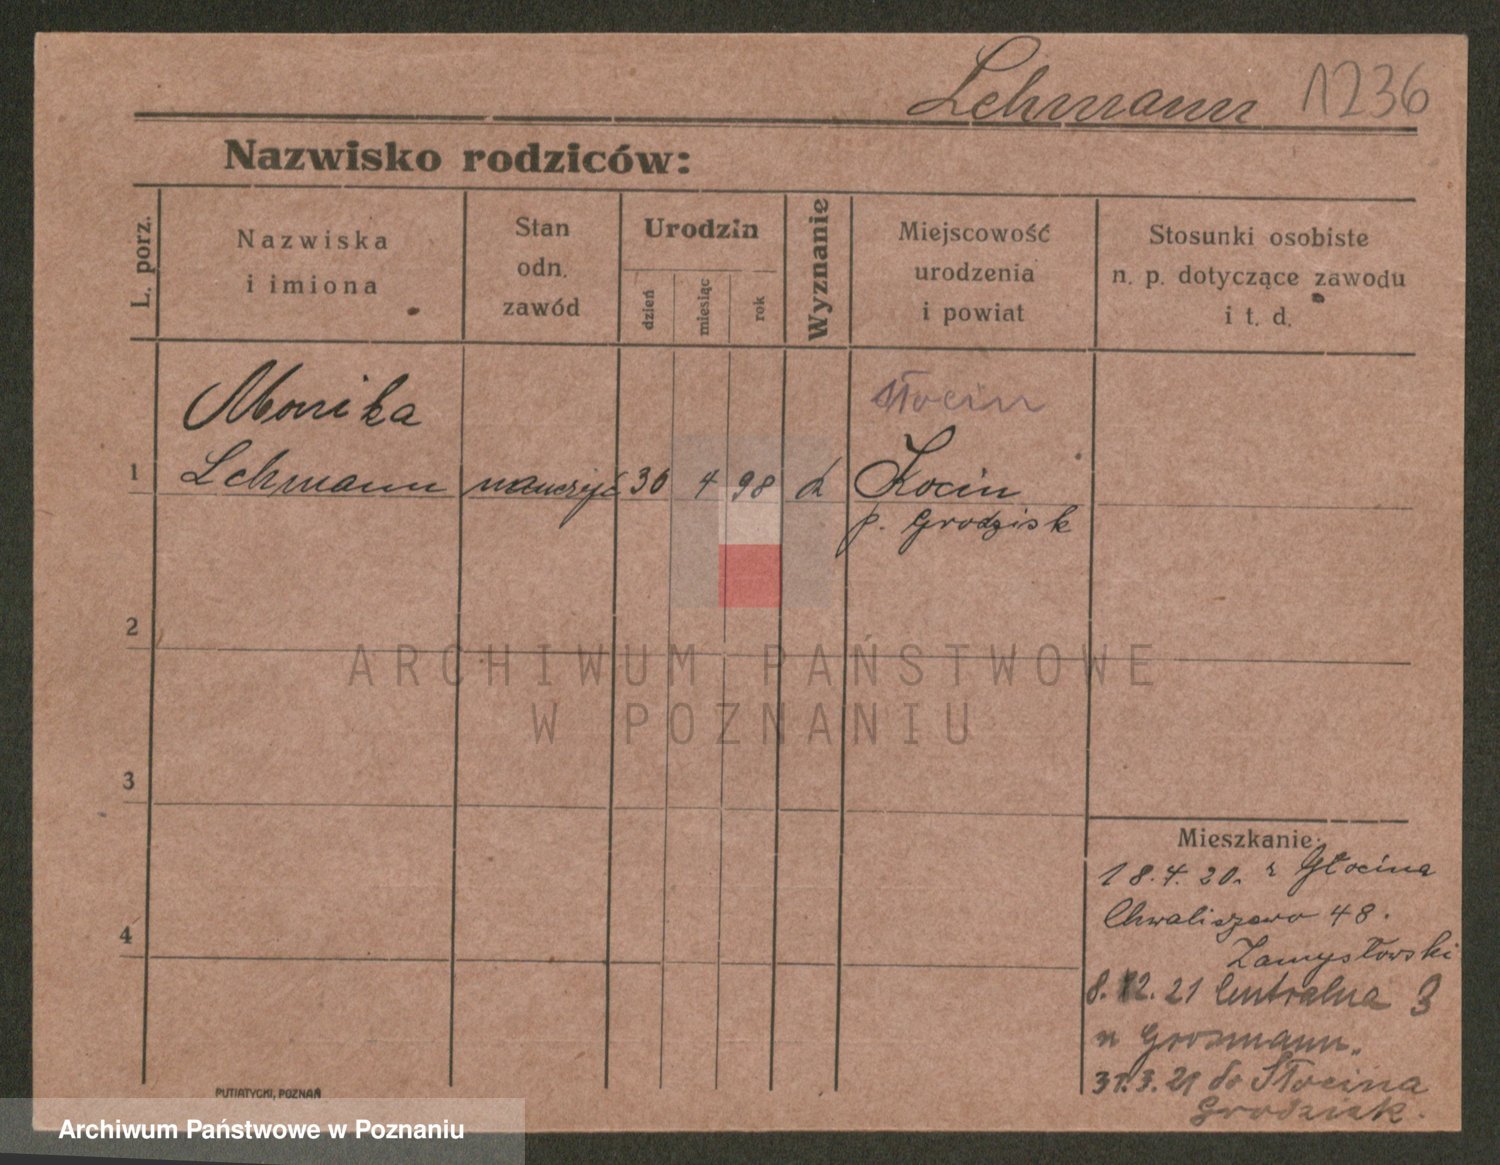 Lehmann 1236
Nazwisko rodziców:
L. porz.
Nazwiska
i imiona
Stan
odn.
zawód
Urodzin
dzień
miesiąc
rok
Wyznanie
Miejscowość
urodzenia
i powiat
Stosunki osobiste
n. p. dotyczące zawodu
i t. d.
Monika
Słocin
1 Lehmann nauczyć 30 4 98 k Kocin
p. Grodzisk
2
ARCHIWUM PAŃSTWOWE
W POZNANIU
3
Mieszkanie:
18.4.20. z Głocina
Chwaliszewo 48.
4
Zamysłowski
8. 12. 21 Centralna 3
n Grosmann.
31.3.21 do Słocina
Grodzisk.
PUTIATYCKI, POZNAŃ
Archiwum Państwowe w Poznaniu